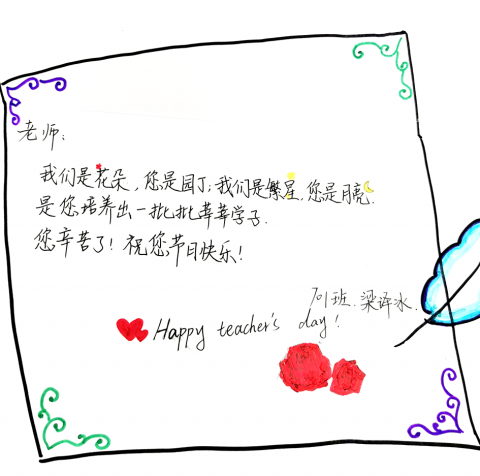 老师:
我们是花朵,您是园丁;我们是繁星,您是月亮.
是您培养出一批批莘莘学子.
您辛苦了!祝您节日快乐!
701班.梁译冰.
Happy teacher's day!